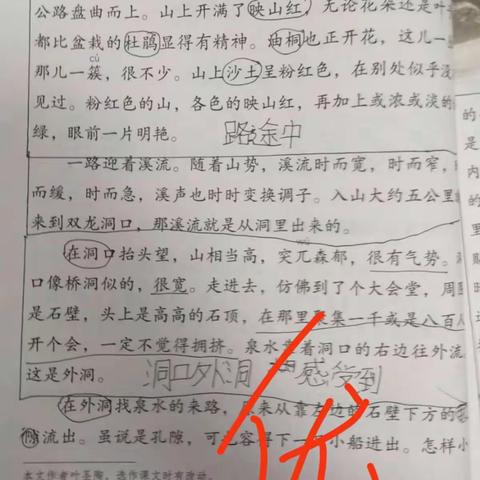 公路盘曲而上。山上开满了映山红，无论花朵还是叶
都比盆栽的杜鹃显得有精神。油桐也正开花，这儿一
cù
那儿一簇，很不少。山上沙土呈粉红色，在别处似乎没
见过。粉红色的山，各色的映山红，再加上或浓或淡的
绿，眼前一片明艳。 路途中
一路迎着溪流。随着山势，溪流时而宽，时而窄，
而缓，时而急，溪声也时时变换调子。入山大约五公里
来到双龙洞口，那溪流就是从洞里出来的。
在洞口抬头望，山相当高，突兀森郁，很有气势。
口像桥洞似的，很宽。走进去，仿佛到了个大会堂，周围
是石壁，头上是高高的石顶，在那里聚集一千或是八百人
开个会，一定不觉得拥挤。泉水靠着洞口的右边往外流
这是外洞。 洞口外洞 感受到
在外洞找泉水的来路，原来从靠左边的石壁下方的
流出。虽说是孔隙，可也容得下一只小船进出。怎样小
本文作者叶圣陶，选作课文时有改动。
优
的
是
内
的